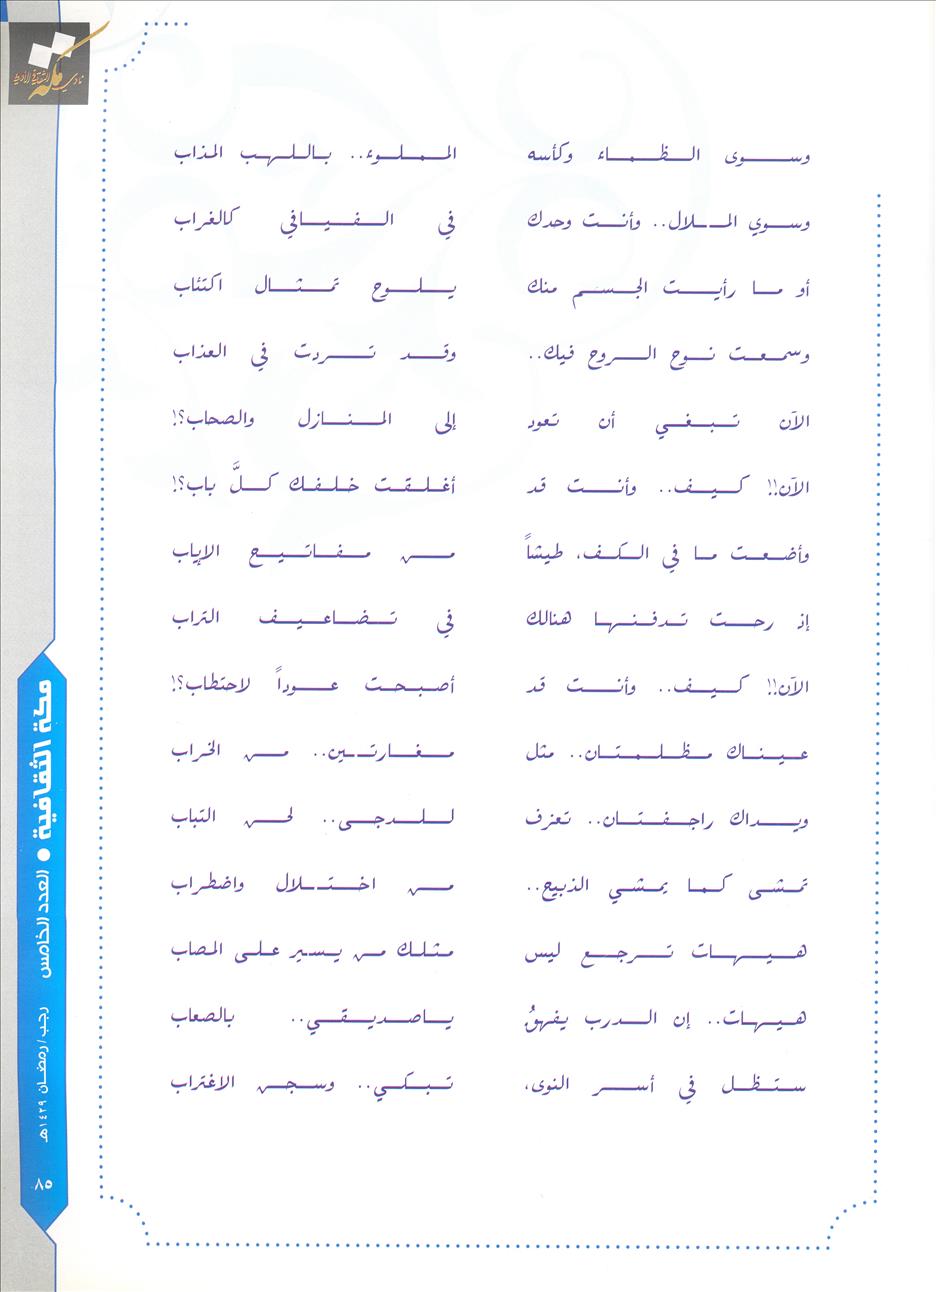 وسوى الظماء وكأسه المملوء.. باللهب المذاب
وسوي الملال.. وأنت وحدك في الفيافي كالغراب
أو ما رأيت الجسم منك يلوح تمثال اكتئاب
وسمعت نوح الروح فيك.. وقد تردت في العذاب
الآن تبغي أن تعود إلى المنازل والصحاب؟!
الآن!! كيف.. وأنت قد أغلقت خلفك كلَّ باب؟!
وأضعت ما في الكف، طيشاً من مفاتيح الإياب
إذ رحت تدفنها هنالك في تضاعيف التراب
الآن!! كيف.. وأنت قد أصبحت عوداً لاحتطاب؟!
عيناك مظلمتان.. مثل مغارتين.. من الخراب
ويداك راجفتان.. تعزف للدجى.. لحن التباب
تمشى كما يمشي الذبيح.. من اختلال واضطراب
هيهات ترجع ليس مثلك من يسير على المصاب
هيهات.. إن الدرب يفهقُ ياصديقي.. بالصعاب
ستظل في أسر النوى، تبكي.. وسجن الاغتراب
نادي مكة الثقافي الأدبي
مكة الثقافية ● العدد الخامس رجب/رمضان ١٤٢٩هـ
٨٥